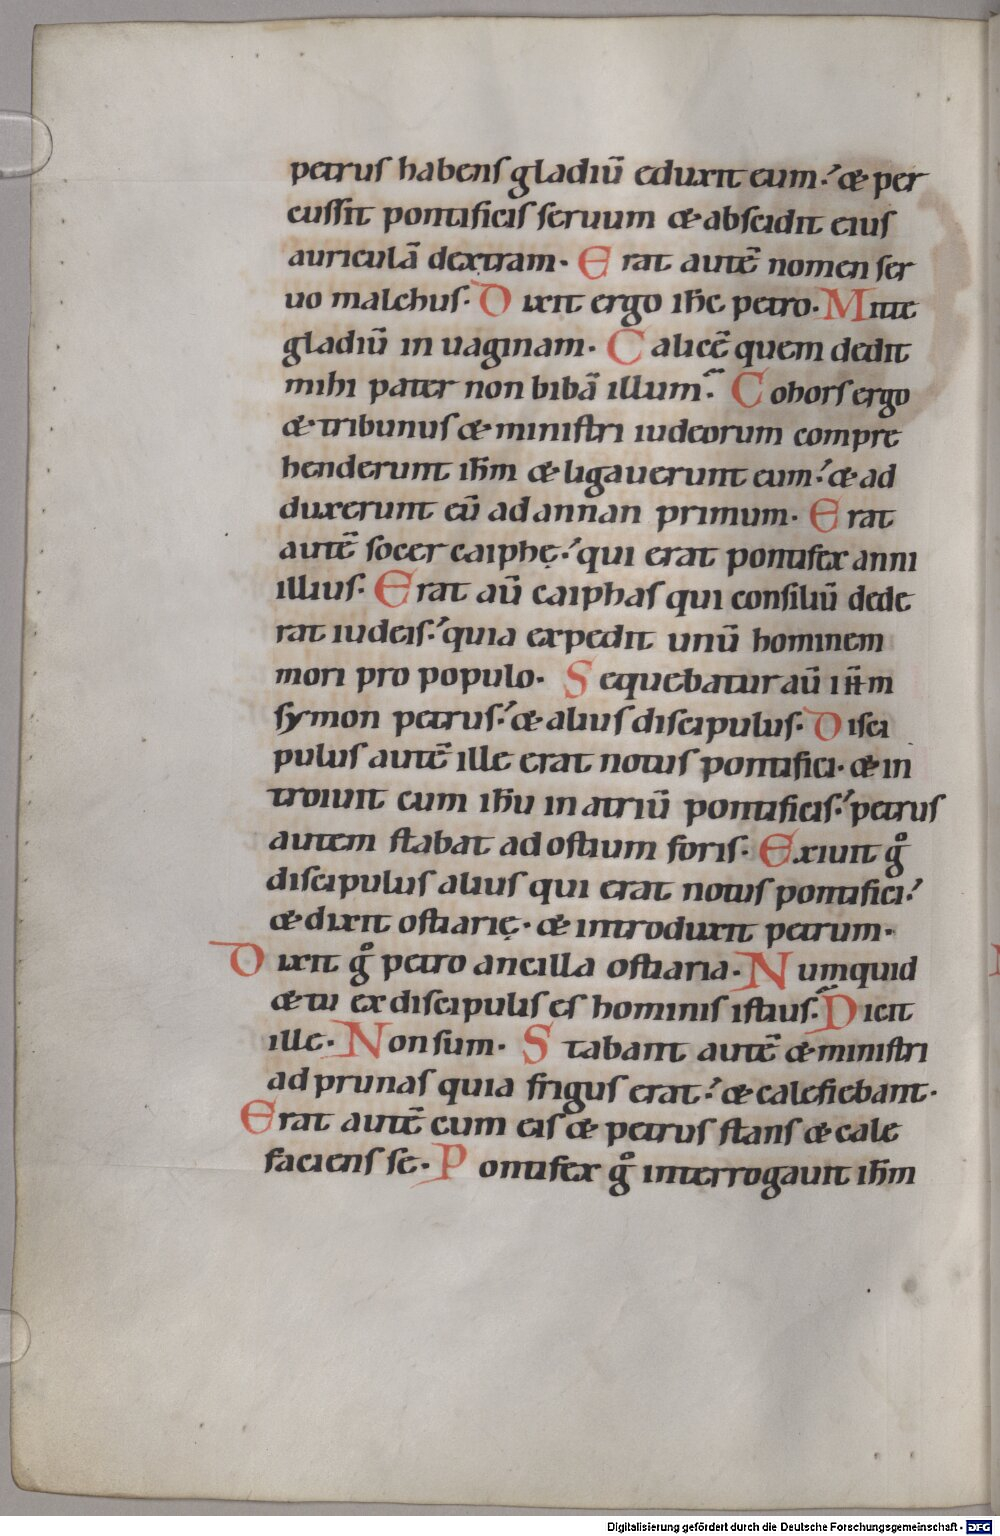 petrus habens gladiū eduxit eum· & per
cussit pontificis seruum & abscidit eius
auriculā dextram· Erat autē nomen ser
uo malchus· Dixit ergo ihc petro· Mitte
gladiū in uaginam· Calicē quem dedit
mihi pater non bibā illum· Cohors ergo
& tribunus & ministri iudeorum compre
henderunt ihm & ligauerunt eum· & ad
duxerunt eū ad annan primum· Erat
autē socer caiphę· qui erat pontifex anni
illius· Erat aū caiphas qui consiliū dede
rat iudeis· quia expedit unū hominem
mori pro populo· Sequebatur aū ihm
symon petrus· & alius discipulus· Disci
pulus autē ille erat notus pontifici· & in
troiuit cum ihu in atriū pontificis· petrus
autem stabat ad ostium foris· Exiuit gͦ
discipulus alius qui erat notus pontifici·
& dixit ostiarię· & introduxit petrum·
Dixit gͦ petro ancilla ostiaria· Numquid
& tu ex discipulis es hominis istius· Dicit
ille· Non sum· Stabant autē & ministri
ad prunas quia frigus erat· & calefiebant·
Erat autē cum eis & petrus stans & cale
faciens se· Pontifex gͦ interrogauit ihm
Digitalisierung gefördert durch die Deutsche Forschungsgemeinschaft - DFG